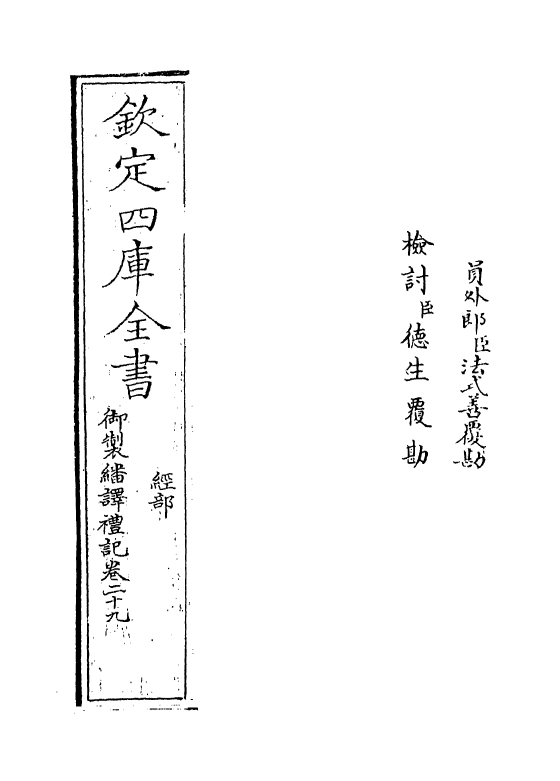 員外郎臣法式善覆勘
檢討臣德生覆勘
欽定四庫全書
經部
御製繙譯禮記卷二十九